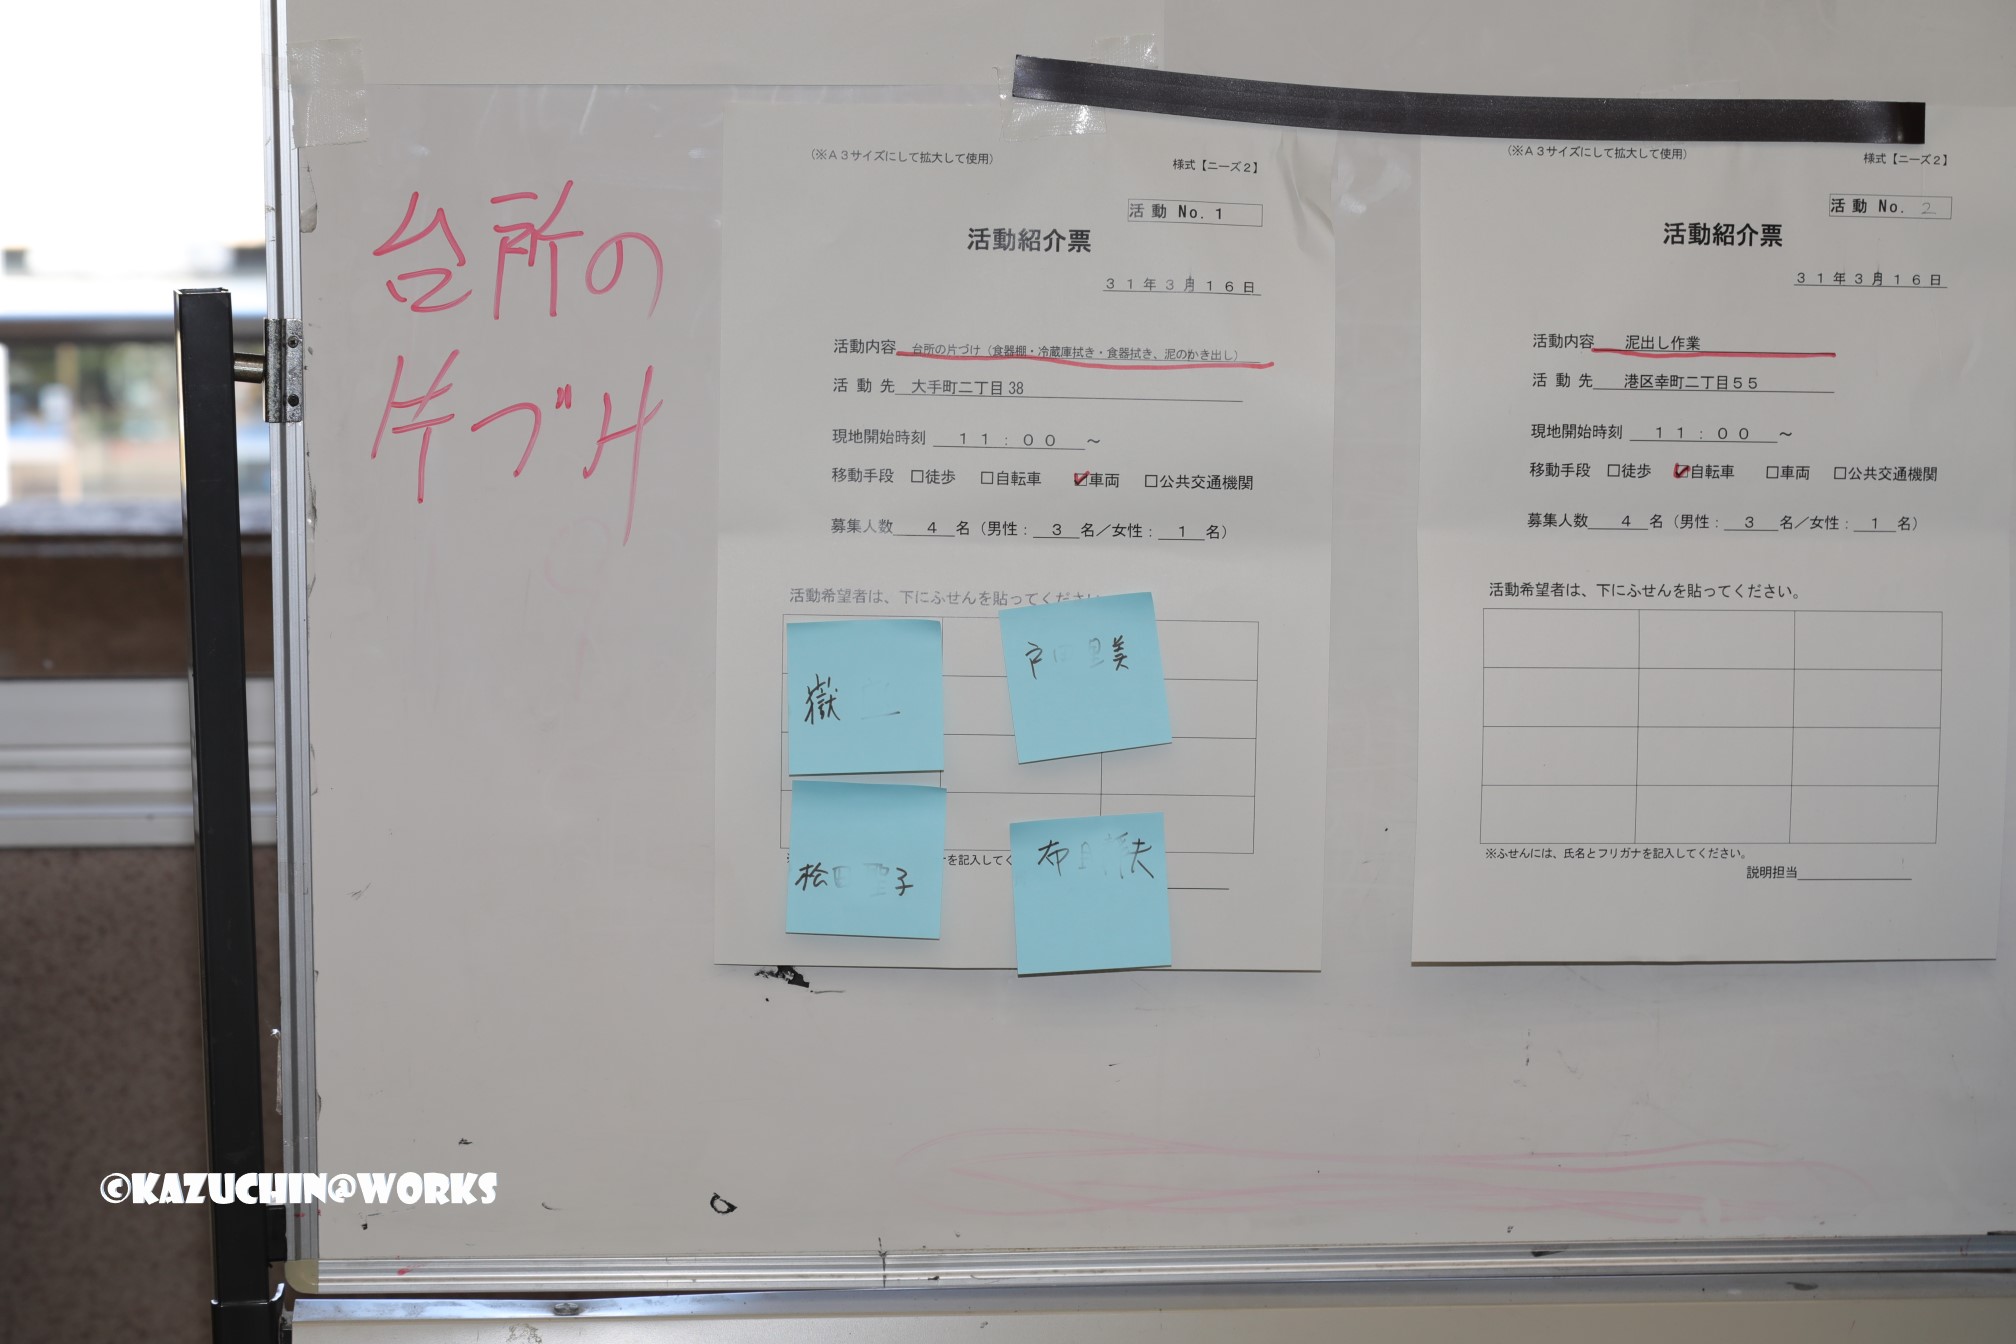 台所の
片づけ
(※A3サイズにして拡大して使用)
様式【ニーズ2】
活動 No. 1
活動紹介票
31年3月16日
活動内容 台所の片づけ（食器棚・冷蔵庫拭き・食器拭き、泥のかき出し）
活動先 大手町二丁目38
現地開始時刻 11：00 ～
移動手段 □徒歩 □自転車 ☑車両 □公共交通機関
募集人数 4 名（男性： 3 名／女性： 1 名）
活動希望者は、下にふせんを貼ってください
嶽
戸 美
桧 子
布 夫
を記入してく
(※A3サイズにして拡大して使用)
様式【ニーズ2】
活動 No. 2
活動紹介票
31年3月16日
活動内容 泥出し作業
活動先 港区幸町二丁目55
現地開始時刻 11：00 ～
移動手段 □徒歩 ☑自転車 □車両 □公共交通機関
募集人数 4 名（男性： 3 名／女性： 1 名）
活動希望者は、下にふせんを貼ってください。
※ふせんには、氏名とフリガナを記入してください。
説明担当
©KAZUCHIN@WORKS